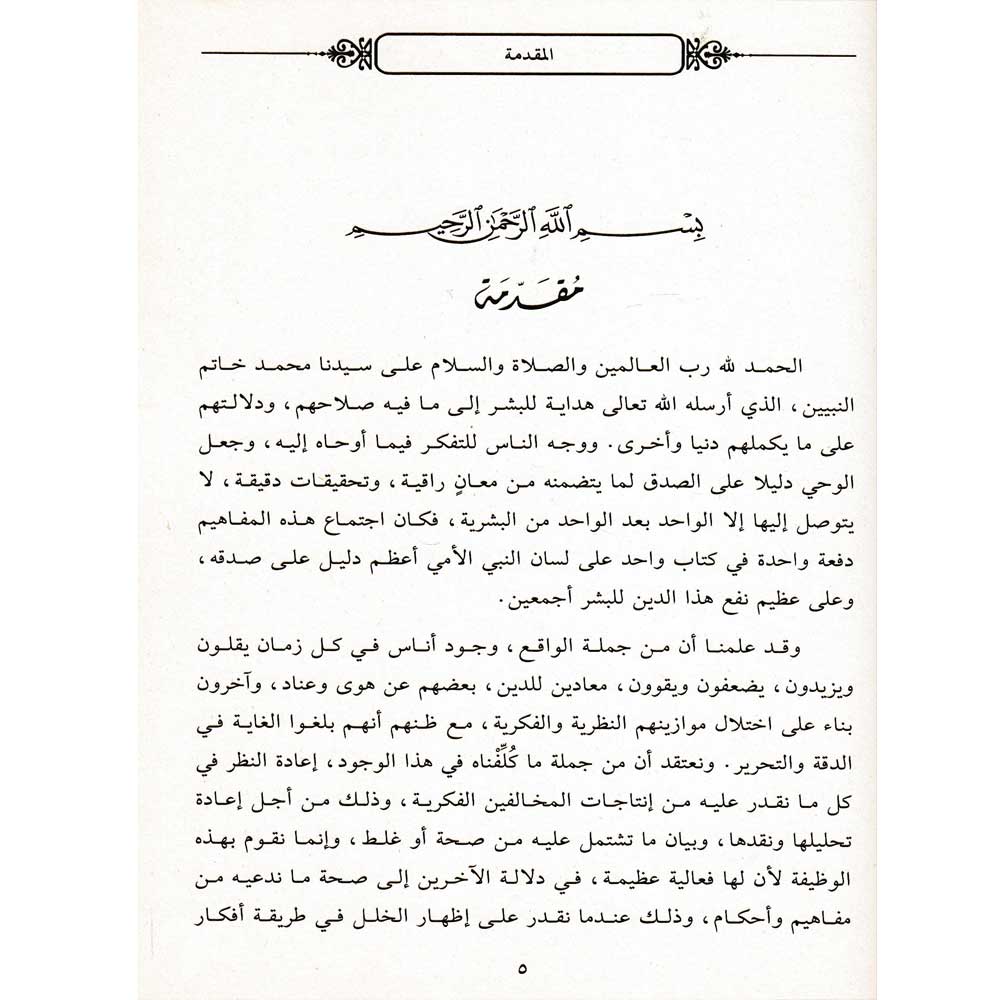 المقدمة
بِسْمِ ٱللَّهِ ٱلرَّحْمَٰنِ ٱلرَّحِيمِ
مُقَدّمَة
الحمد لله رب العالمين والصلاة والسلام على سيدنا محمد خاتم
النبيين، الذي أرسله الله تعالى هداية للبشر إلى ما فيه صلاحهم، ودلالتهم
على ما يكملهم دنيا وأخرى. ووجه الناس للتفكر فيما أوحاه إليه، وجعل
الوحي دليلا على الصدق لما يتضمنه من معانٍ راقية، وتحقيقات دقيقة، لا
يتوصل إليها إلا الواحد بعد الواحد من البشرية، فكان اجتماع هذه المفاهيم
دفعة واحدة في كتاب واحد على لسان النبي الأمي أعظم دليل على صدقه،
وعلى عظيم نفع هذا الدين للبشر أجمعين.
وقد علمنا أن من جملة الواقع، وجود أناس في كل زمان يقلون
ويزيدون، يضعفون ويقوون، معادين للدين، بعضهم عن هوى وعناد، وآخرون
بناء على اختلال موازينهم النظرية والفكرية، مع ظنهم أنهم بلغوا الغاية في
الدقة والتحرير. ونعتقد أن من جملة ما كُلِّفْناه في هذا الوجود، إعادة النظر في
كل ما نقدر عليه من إنتاجات المخالفين الفكرية، وذلك من أجل إعادة
تحليلها ونقدها، وبيان ما تشتمل عليه من صحة أو غلط، وإنما نقوم بهذه
الوظيفة لأن لها فعالية عظيمة، في دلالة الآخرين إلى صحة ما ندعيه من
مفاهيم وأحكام، وذلك عندما نقدر على إظهار الخلل في طريقة أفكار
٥